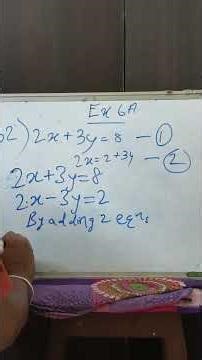 Ex 6A
Q2) 2x + 3y = 8 — ①
2x = 2 + 3y — ②
2x + 3y = 8
2x - 3y = 2
By adding 2 eqns